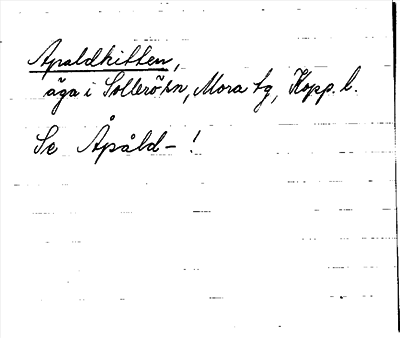 Apaldkitten,
äga i Sollerö sn, Mora tg, Kopp. l.
Se Åpåld- !